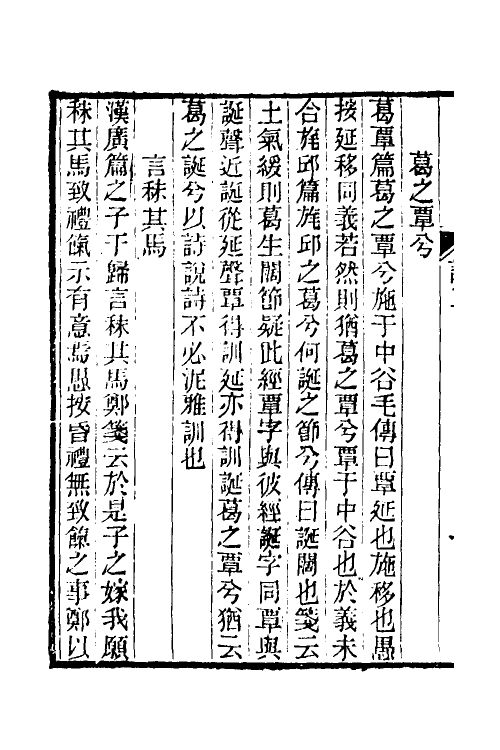 葛之覃兮
葛覃篇葛之覃兮施于中谷毛傳曰覃延也施移也愚
按延移同義若然則猶葛之覃兮覃于中谷也於義未
合旄邱篇旄邱之葛兮何誕之節兮傳曰誕闊也箋云
土氣緩則葛生闊節疑此經覃字與彼經誕字同覃與
誕聲近誕從延聲覃得訓延亦得訓誕葛之覃兮猶云
葛之誕兮以詩說詩不必泥雅訓也
言秣其馬
漢廣篇之子于歸言秣其馬鄭箋云於是子之嫁我願
秣其馬致禮餼示有意焉愚按昏禮無致餼之事鄭以